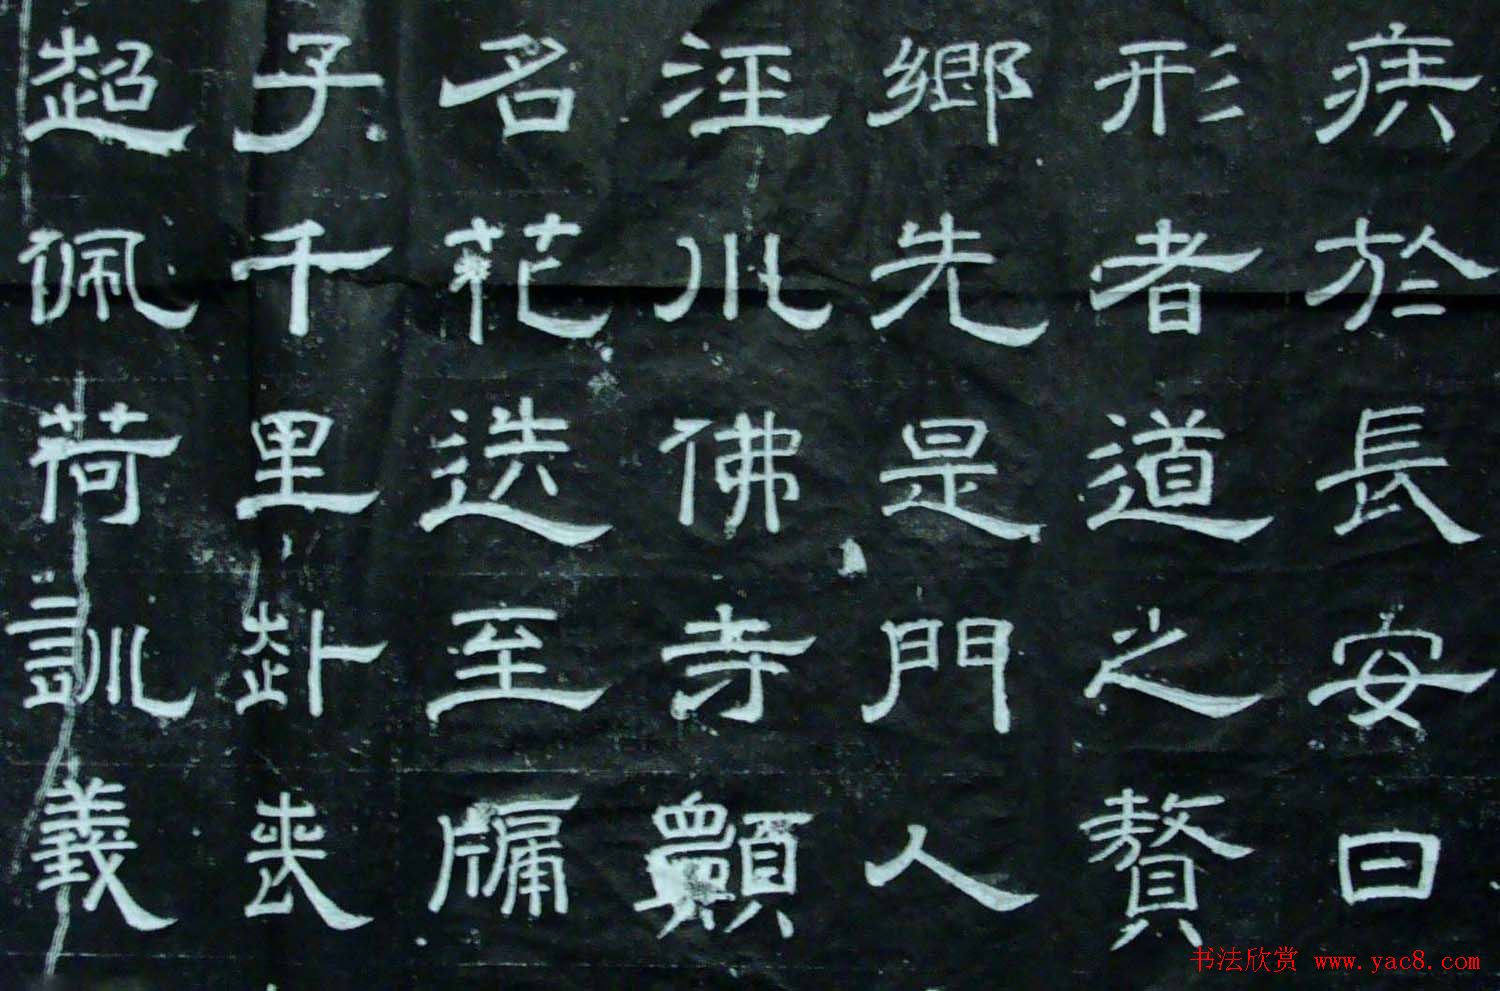 疾於長安曰
形者道之贅
鄉先是門人
涇川佛寺顯
名花迭至牖
子千里赴喪
超佩荷訓義
书法欣赏 www.yac8.com